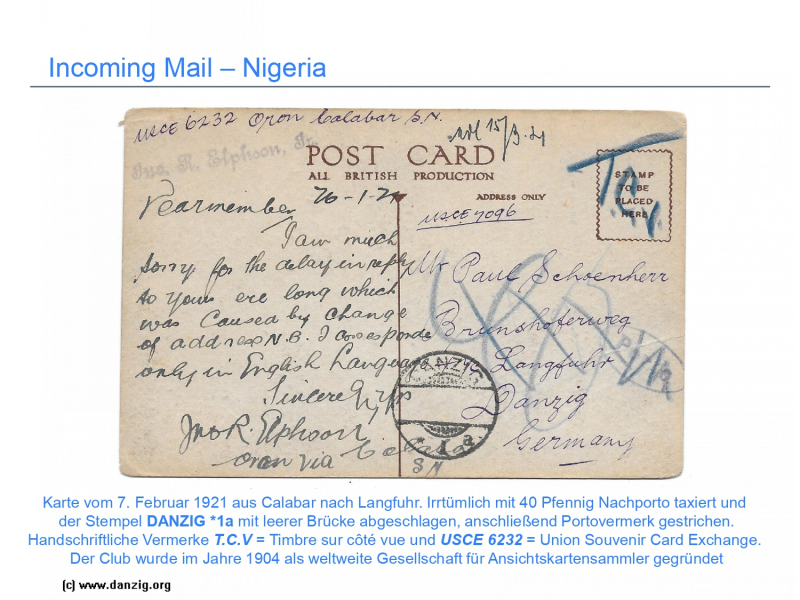 Incoming Mail – Nigeria
USCE 6232 Oron Calabar S.N.
15/3.21
Jno. R. Elphoon, Jr.
POST CARD
ALL BRITISH PRODUCTION
T.C.V.
STAMP
TO BE
PLACED
HERE
26-1-21
ADDRESS ONLY
USCE 7096
Dear member
I am much
Sorry for the delay in reply
to yours ere long which
was Caused by Change
of address N.B. I corresponde
only in English Language
Sincerely Yrs
Jno R. Elphoon
Oron via Calabar
S N
Mr Paul Schoenherr
Brunshoferweg
Langfuhr
Danzig
Germany
DANZIG
* 1 a
Karte vom 7. Februar 1921 aus Calabar nach Langfuhr. Irrtümlich mit 40 Pfennig Nachporto taxiert und
der Stempel DANZIG *1a mit leerer Brücke abgeschlagen, anschließend Portovermerk gestrichen.
Handschriftliche Vermerke T.C.V = Timbre sur côté vue und USCE 6232 = Union Souvenir Card Exchange.
Der Club wurde im Jahre 1904 als weltweite Gesellschaft für Ansichtskartensammler gegründet
(c) www.danzig.org